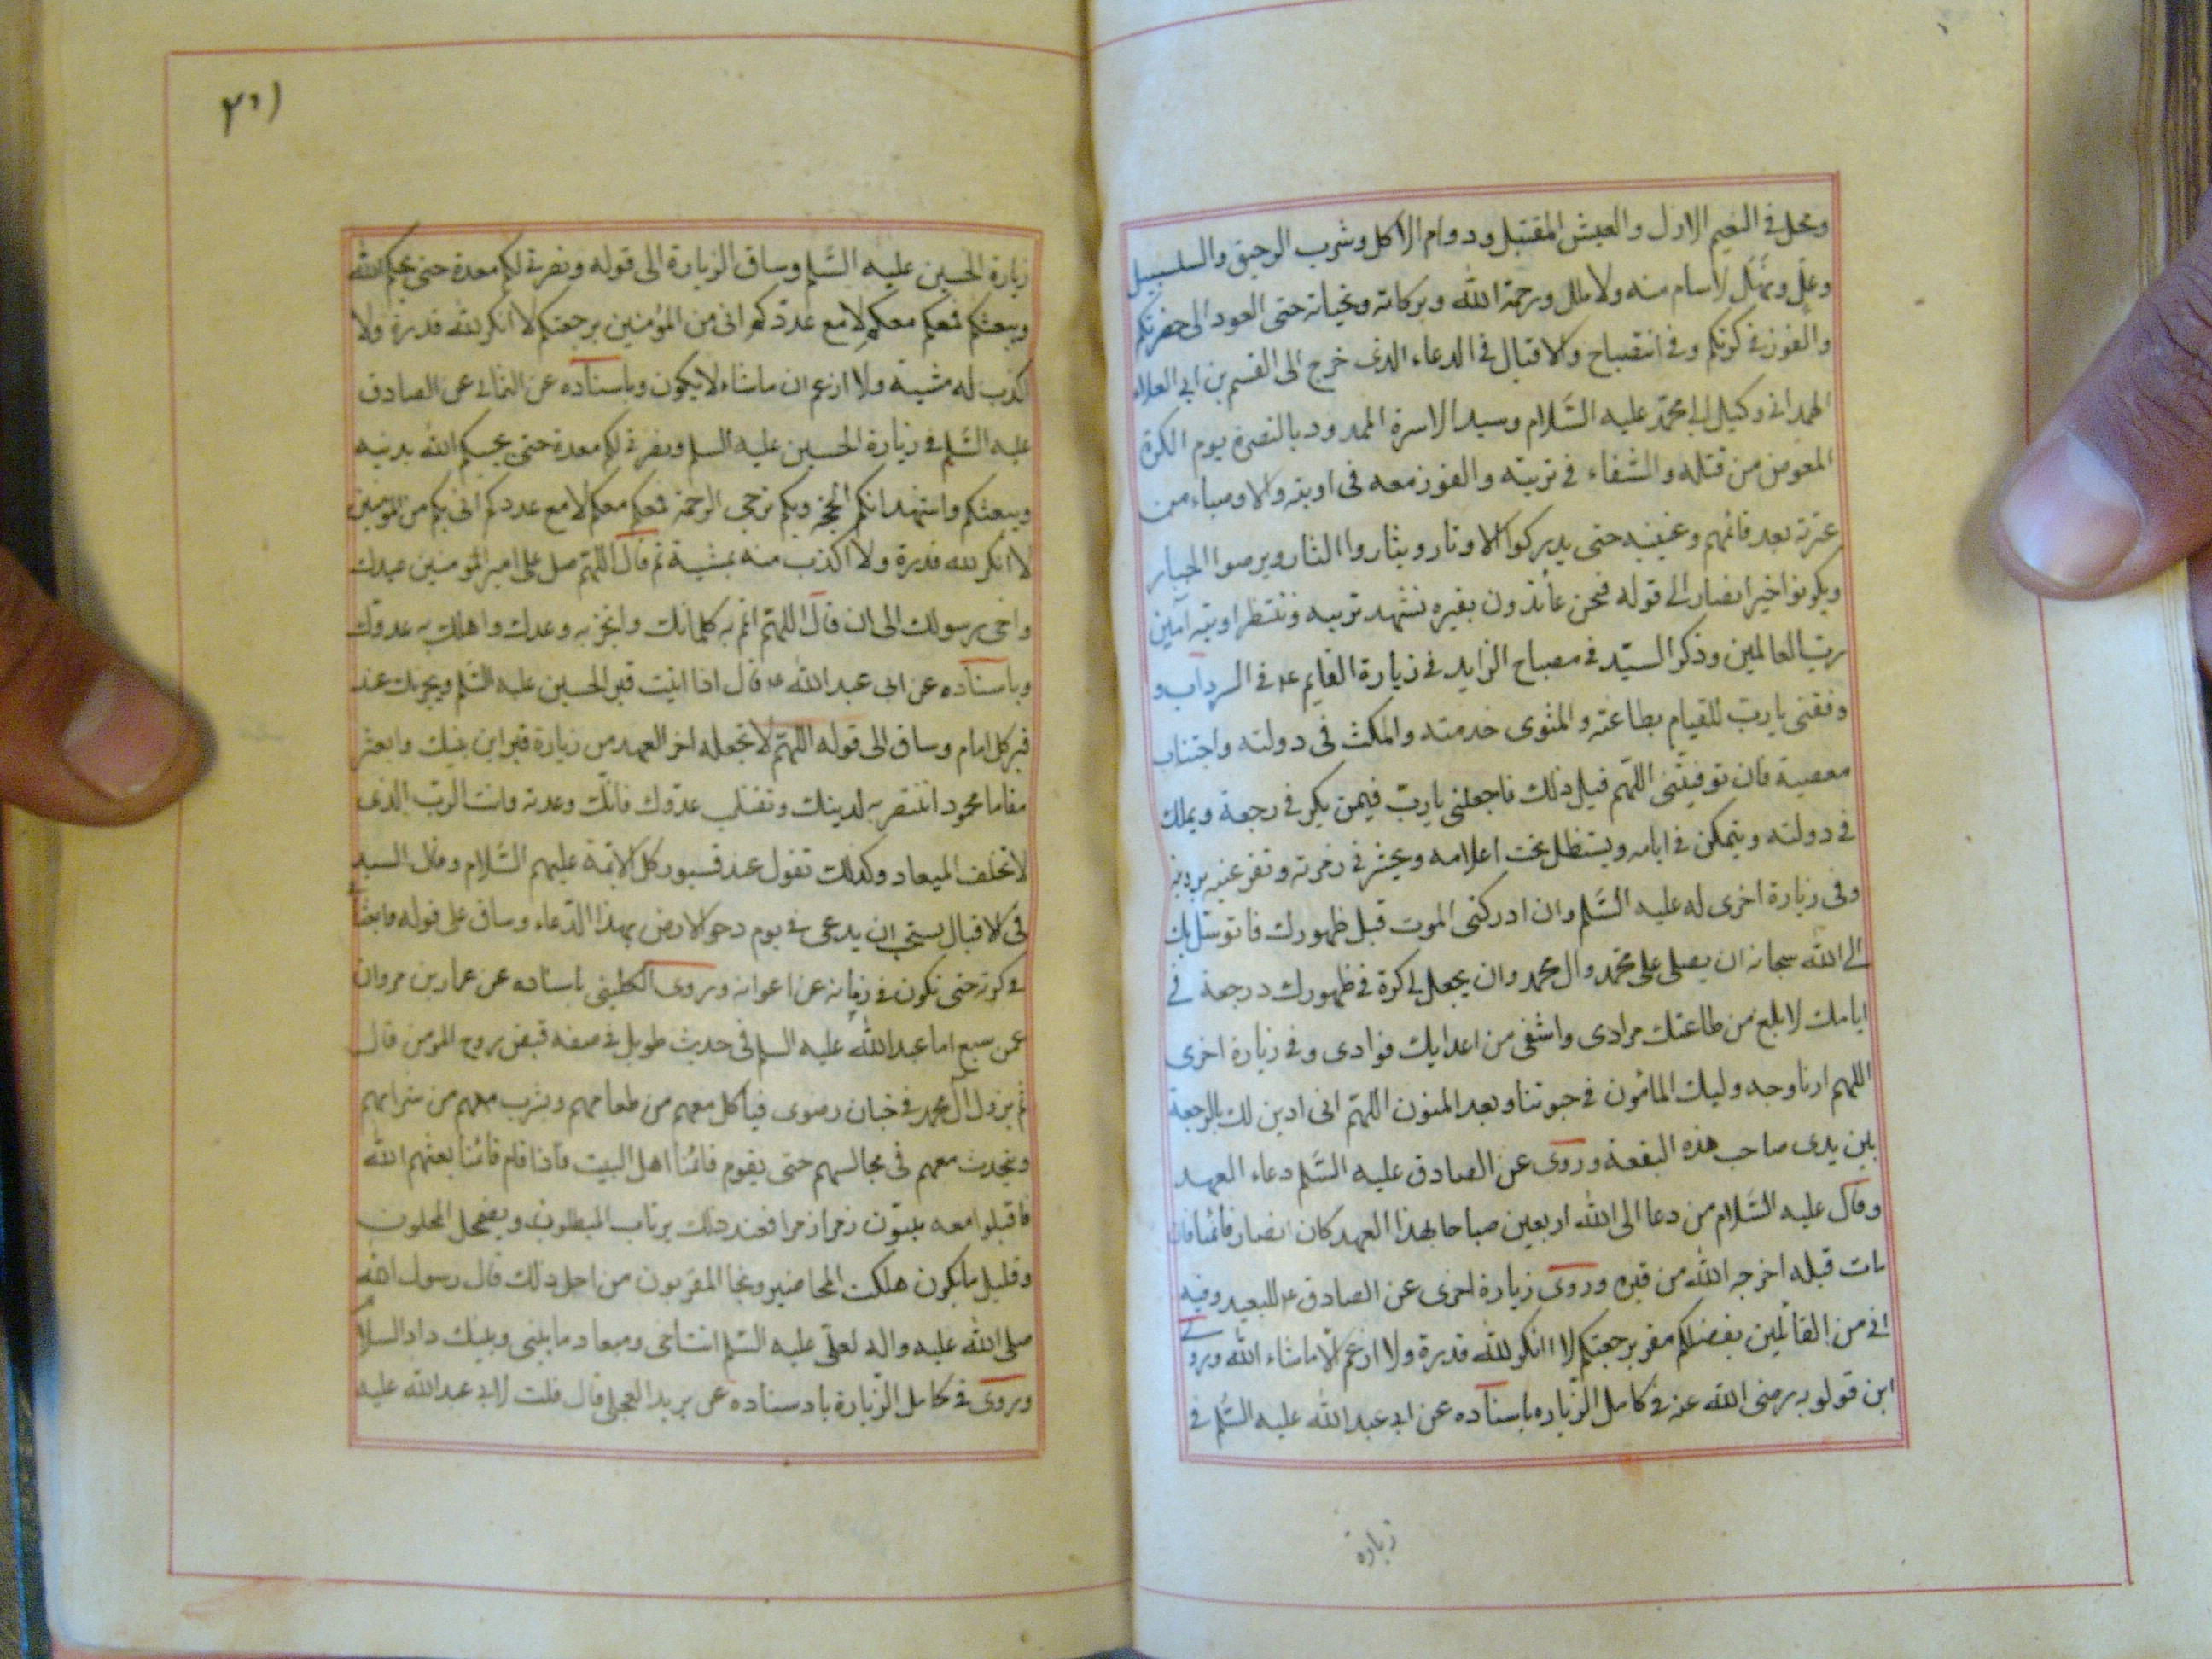 ومحل في النعيم الازل والعيش المقتبل ودوام الاكل وشرب الرحيق والسلسبيل
وعل ونهل لاسام منه ولا ملل ورحمة الله وبركاته وتحياته حتى العود الى حضرتكم
والفوز في كرتكم وفي المصباح والاقبال في الدعاء الذى خرج الى القسم بن ابي العلاء
الهمدانى وكيل ابي محمد عليه السلام وسيد الاسرة الممدود بالنصرة يوم الكرة
المعوض من قتله والشفاء في تربته والفوز معه في اوبته والاوصياء من
عترته بعد قائمهم وغيبته حتى يدركوا الاوتار ويثاروا الثار ويرضوا الجبار
ويكونوا خير انصار الى قوله فنحن عائذون بقبره نشهد تربته وننتظر اوبته آمين
رب العالمين وذكر السيد في مصباح الزاير في زيارة القايم ع في السرداب و
وفقنى يا رب للقيام بطاعته والمثوى خدمته والمكث في دولته واجتناب
معصيته فان توفيتنى اللهم قبل ذلك فاجعلنى يا رب فيمن يكر في رجعته ويملك
في دولته ويتمكن في ايامه ويستظل تحت اعلامه ويحشر في زمرته وتقر عينه برؤيته
وفي زيارة اخرى له عليه السلم وان ادركنى الموت قبل ظهورك فاتوسل بك
الى الله سبحانه ان يصلى على محمد وال محمد وان يجعل لي كرة في ظهورك ورجعة في
ايامك لابلغ من طاعتك مرادى واشفى من اعدايك فؤادى وفي زيارة اخرى
اللهم ارنا وجه وليك المامون في حيوتنا وبعد المنون اللهم انى ادين لك بالرجعة
بين يدى صاحب هذه البقعة وروى عن الصادق عليه السلم دعاء العهد
وقال عليه السلام من دعا الى الله اربعين صباحا بهذا العهد كان انصار قائمنا فان
مات قبله اخرجه الله من قبره وروى زيارة اخرى عن الصادق ع للبعيد وفيه
انى من القائلين بفضلكم مقر برجعتكم لا انكر لله قدرة ولا ازعم الا ما شاء الله وروى
ابن قولويه رضى الله عنه في كامل الزياره باسناده عن ابي عبد الله عليه السلم في
زيارة
٢٠١
زيارة الحسين عليه السلم وساق الزيارة الى قوله ونصرتى لكم معدة حتى يحكم الله
ويبعثكم فمعكم معكم لا مع عدوكم انى من المؤمنين برجعتكم لا انكر لله قدرة ولا
اكذب له مشية ولا ازعم ان ما شاء لا يكون وباسناده عن الثمالى عن الصادق
عليه السلم في زيارة الحسين عليه السلم ونصرتى لكم معدة حتى يحييكم الله بدينه
ويبعثكم واشهد انكم الحجة وبكم ترجى الرحمة فمعكم معكم لا مع عدوكم انى بكم من المؤمنين
لا انكر لله قدرة ولا اكذب منه بمشية ثم قال اللهم صل على امير المؤمنين عبدك
واخى رسولك الى ان قال اللهم اتمم به كلماتك وانجز به وعدك واهلك به عدوك
وباسناده عن ابى عبد الله ع قال اذا اتيت قبر الحسين عليه السلم ويجزيك عند
قبر كل امام وساق الى قوله اللهم لا تجعله اخر العهد من زيارة قبر ابن نبيك وابعثه
مقاما محمودا تنتصر به لدينك وتقتل به عدوك فانك وعدته وانت الرب الذى
لا تخلف الميعاد وكذلك تقول عند قبور كل الائمة عليهم السلام وقال السيد
في الاقبال يستحب ان يدعى في يوم دحو الارض بهذا الدعاء وساق على قوله وابعثنا
في كرته حتى نكون في زمانه من اعوانه وروى الكلينى باسناده عن عمار بن مروان
عمن سمع ابا عبد الله عليه السلم في حديث طويل في صفه قبض روح المؤمن قال
ثم يزول آل محمد في جنان رضوى فيأكل معهم من طعامهم ويشرب معهم من شرابهم
ويتحدث معهم في مجالسهم حتى يقوم قائمنا اهل البيت فاذا قام قائمنا بعثهم الله
فاقبلوا معه يلبون زمرا زمرا فعند ذلك يرتاب المبطلون ويضمحل المحلون
وقليل ما يكون هلكت المحاضير ونجا المقربون من اجل ذلك قال رسول الله
صلى الله عليه واله لعلى عليه السلم انت اخى وميعاد ما بينى وبينك وادى السلام
وروى في كامل الزيارة باسناده عن بريد العجلى قال قلت لابى عبد الله عليه